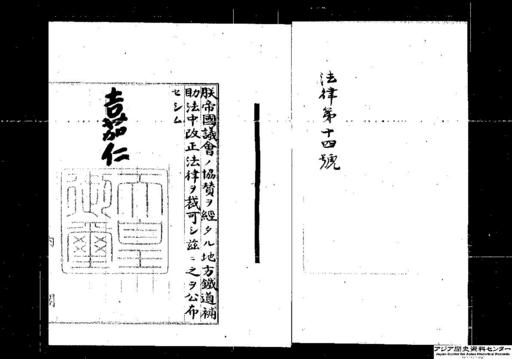 法律第十四號
朕帝國議會ノ協贊ヲ經タル地方鐵道補
助法中改正法律ヲ裁可シ茲ニ之ヲ公布
セシム
嘉仁
天皇
御璽
内
閣
アジア歴史資料センター
Japan Center for Asian Historical Records